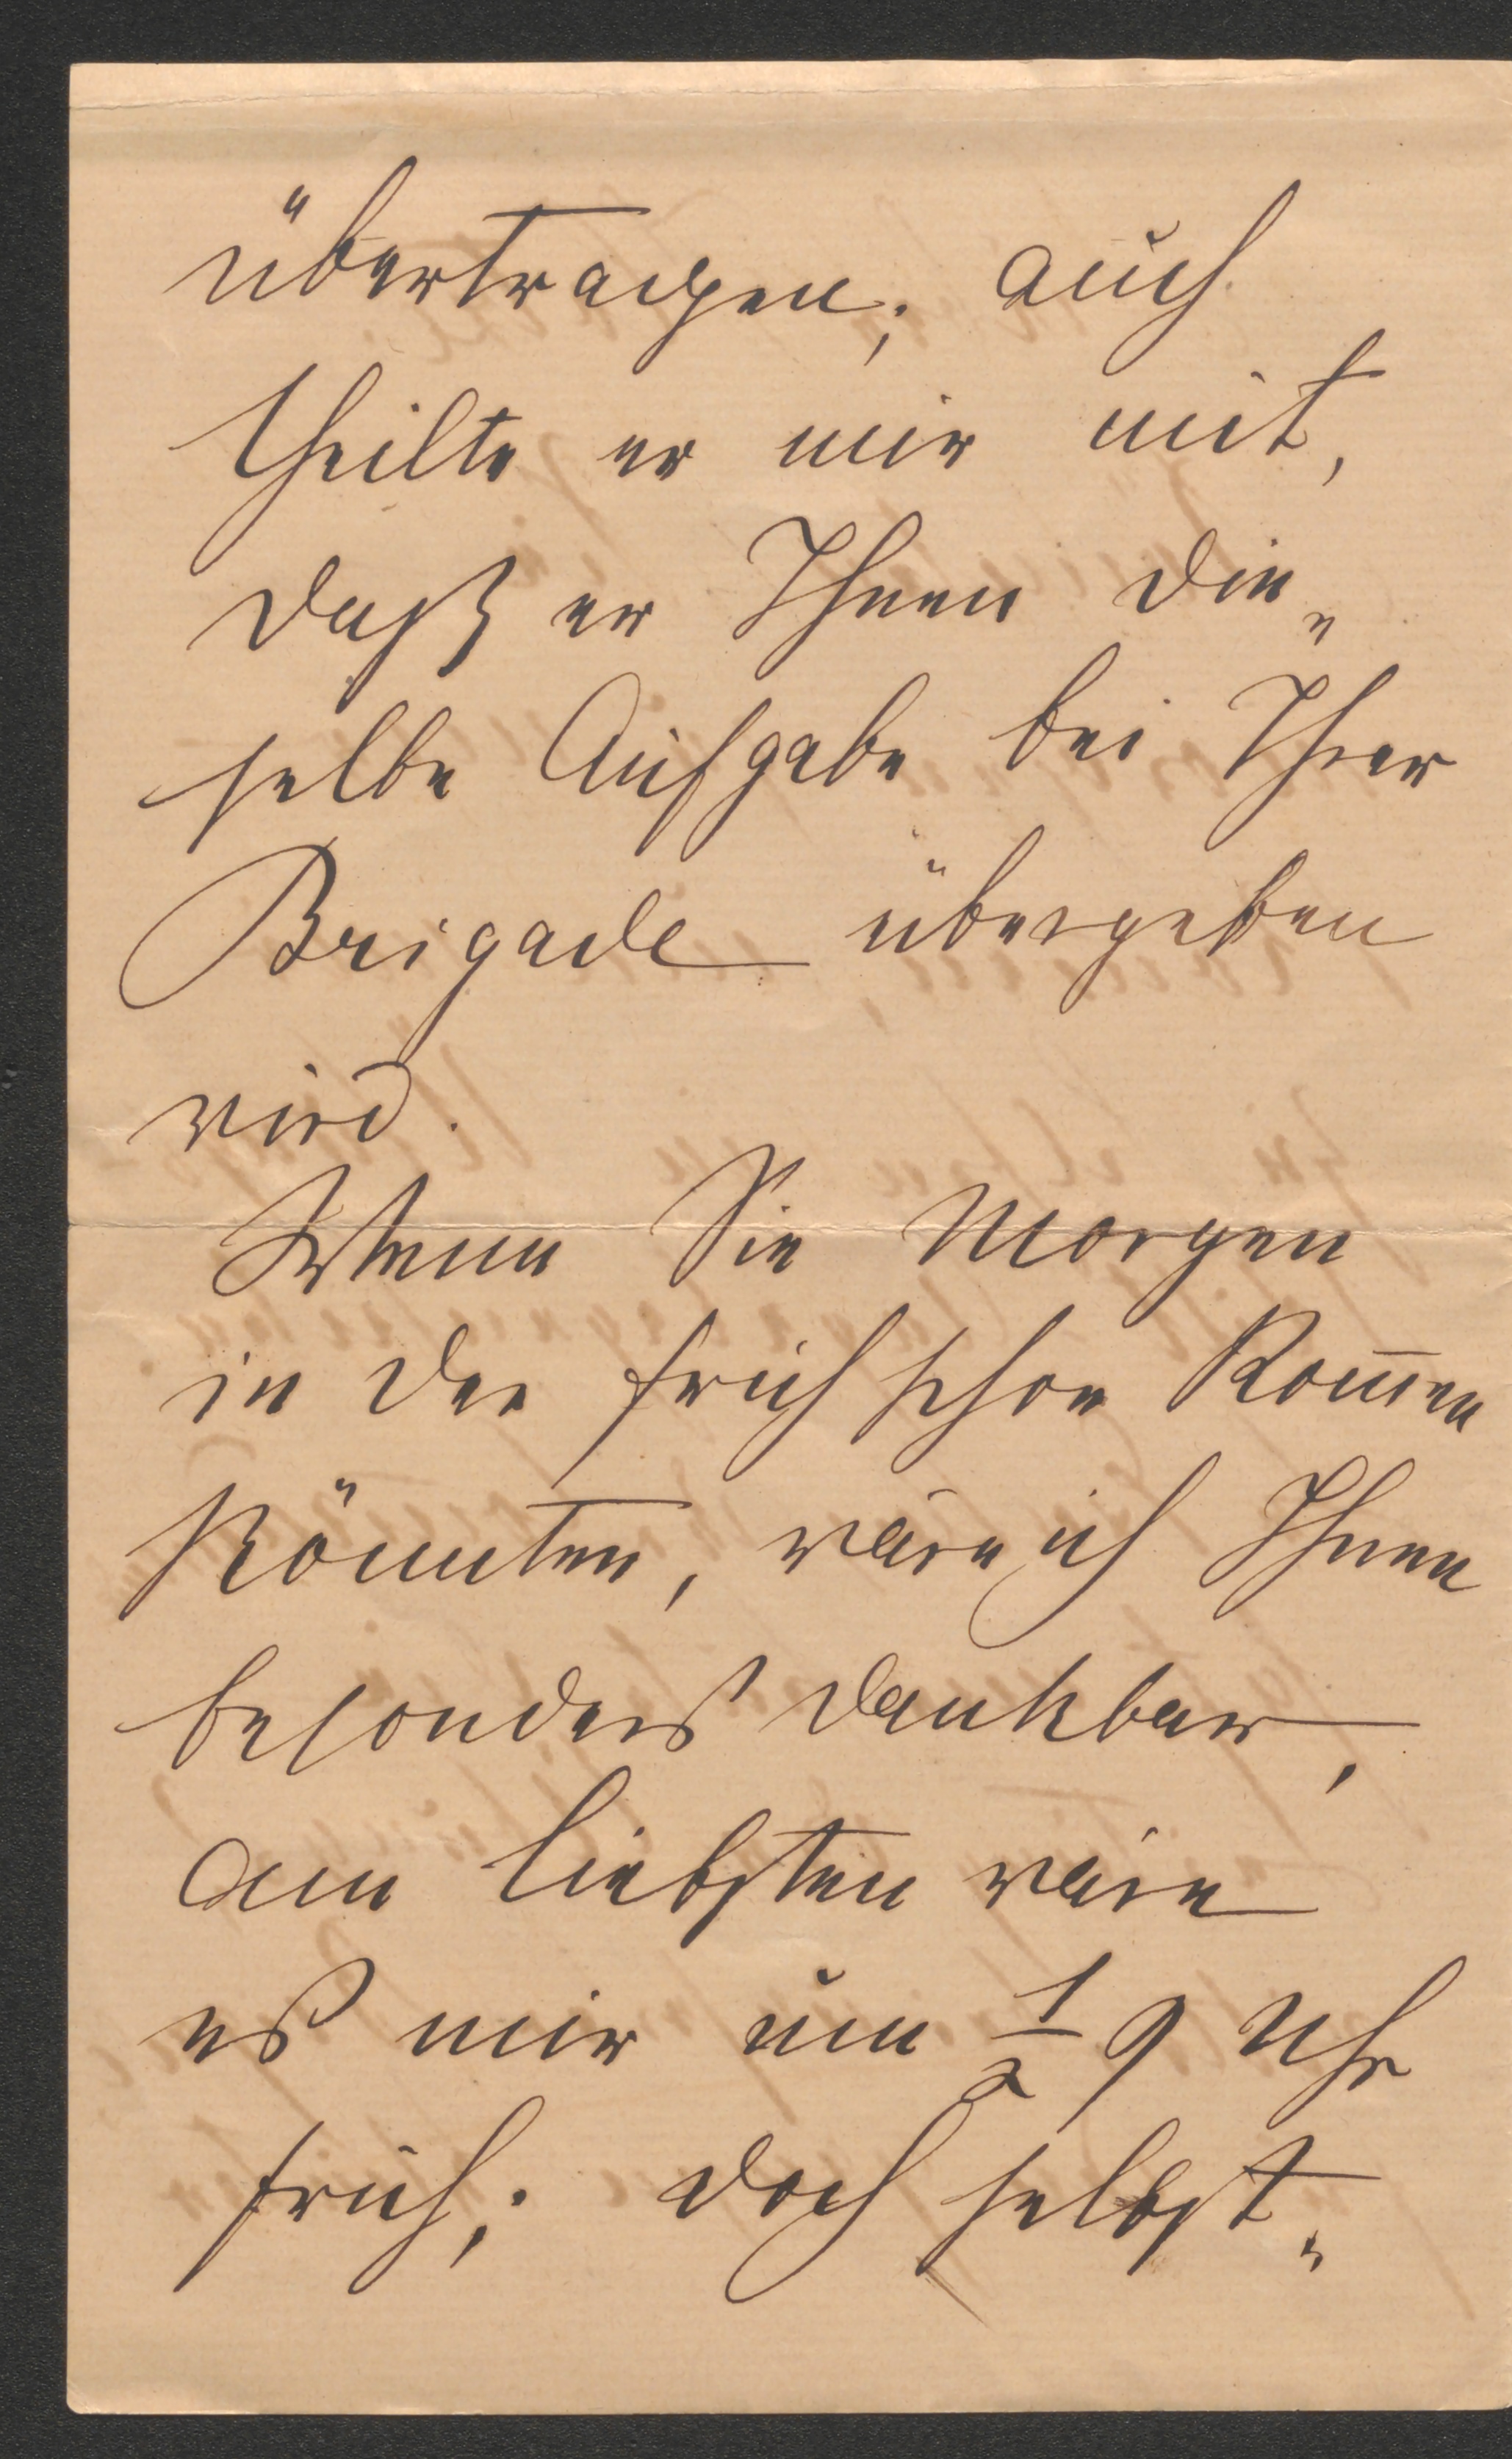 übertragen; auch
theilte er mir mit,
daß er Ihnen die„
selbe Aufgabe bei Ihrer
Brigade übergeben
wird.
Wenn Sie Morgen
in der früh schon kom̅en
könnten, wäre ich Ihnen
besonders dankbar,
am liebsten wäre
es mir um ½ 9 Uhr
früh; doch selbst„